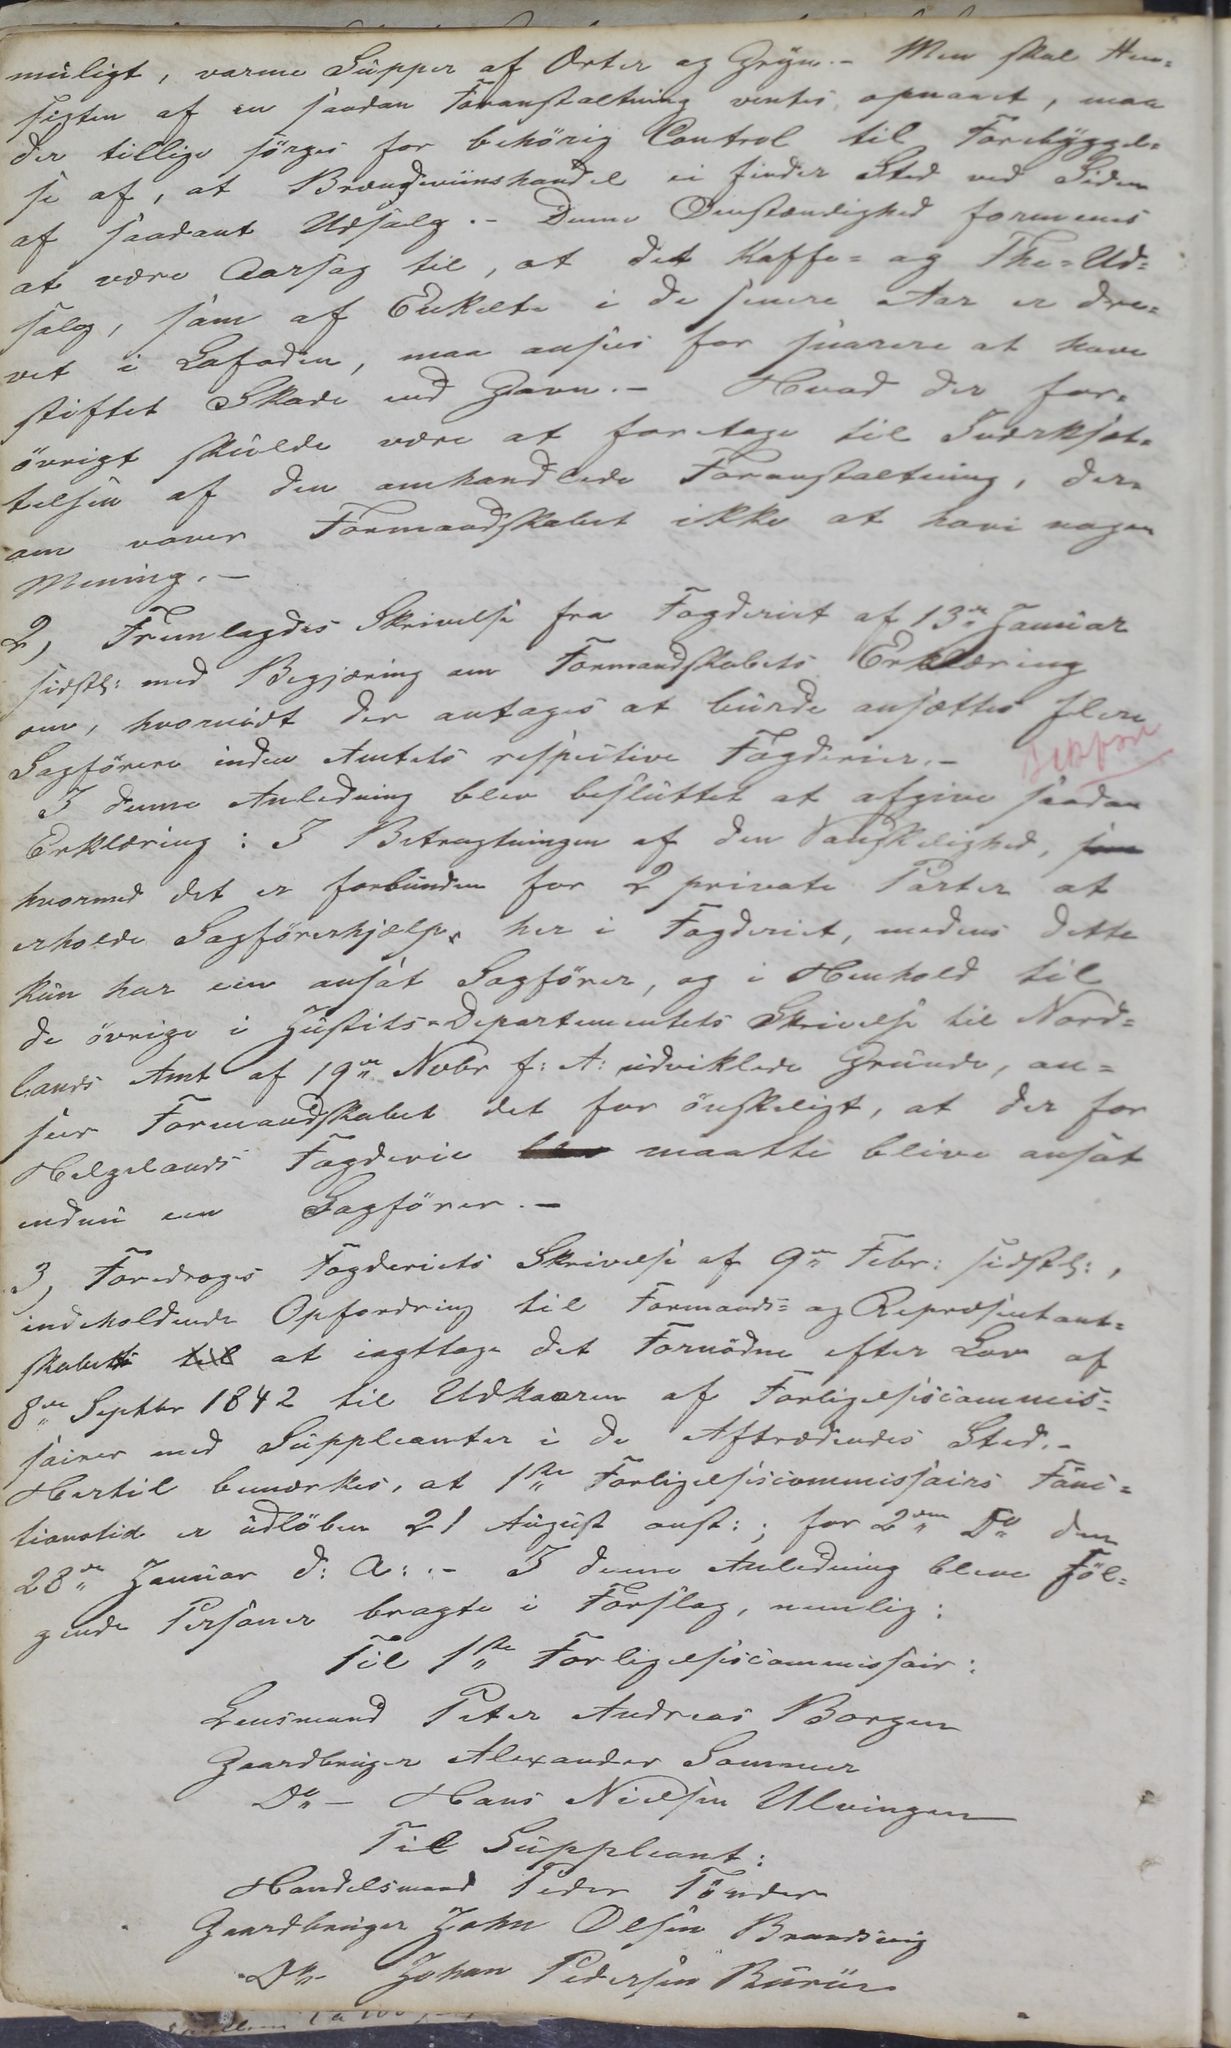 muligt, varme Supper af Erter og Gryn. - Men skal Hen-
sigten af en saadan Foranstaltning ventes opnaaet, maa
der tillige sörges for behörig Control til Forebyggel-
se af, at Brændeviinshandel ei finder Sted ved Siden
af saadant Udsalg. - Denne Omstændighed formenes
at være Aarsag til, at det Kaffe- og The-Ud-
salg, som af Enkelte i de senere Aar er dre-
vet i Lofoden, maa ansees for snarere at have
stiftet Skade end Gavn. - Hvad der for-
övrigt skulde være at foretage til Iværksæt-
telsen af den omhandlede Foranstaltning, der-
om vover Formandskabet ikke at have nogen
Mening. -
2, Fremlagdes Skrivelse fra Fogderiet af 13de Januar
sidstl: med Begjæring om Formandskabets Erklæring
om, hvorvidt der antages at burde ansættes flere
Sagförere inden Amtets respective Fogderier. -
I denne Anledning blev besluttet at afgive saadan
Erklæring: I Betragtningen af den Vanskelighed, som
hvormed det er forbunden for 2 private Parter at
erholde Sagförerhjælp her i Fogderiet, medens dette
kun har een ansat Sagförer, og i Henhold til
de övrige i Justits-Departementets Skrivelse til Nord-
lands Amt af 19de Novbr f: A: udviklede Grunde, an-
seer Formandskabet det for önskeligt, at der for
Helgelands Fogderie blev maatte blive ansat
endnu een Sagförer. -
3, Foredroges Fogderiets Skrivelse af 9de Febr: sidstl:,
indeholdende Opfordring til Formands- og Repræsentant-
skabet til at iagttage det Fornödne efter Lov af
8de Septbr 1842 til Udkaaren af Forligelsescommis-
sairer med Suppleanter i de Aftrædendes Sted. -
Hertil bemærkes, at 1ste Forligelsescommissairs Func-
tionstid er udlöben 21 August anst:; for 2den Do den
28de Januar d: A: - I denne Anledning bleve Föl-
gende Personer bragte i Forslag, nemlig:
Til 1ste Forligelsescommissair:
Lensmand Peter Andreas Borgen
Gaardbruger Alexander Sommer
Do - Hans Nielsen Ulvingen
Til Suppleant:
Handelsmand Peder Tönder
Gaardbruger John Olsen Brandsvig
Do - Johan Pedersen